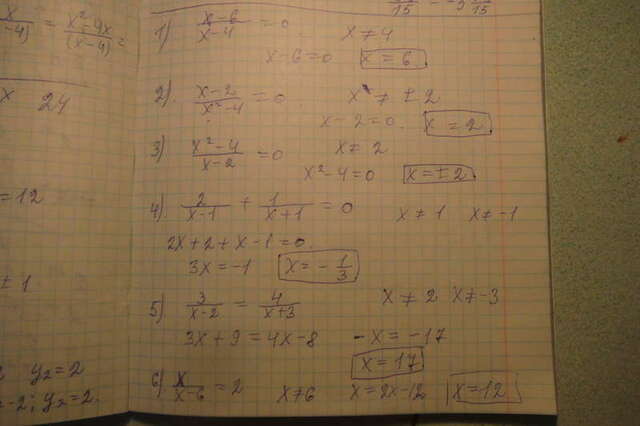 x/(-4) = (x²-4x)/(x-4) =
x 24
= 12
± 1
y₂ = 2
-2; y₂ = 2.
15 15
1) (x-6)/(x-4) = 0 x ≠ 4
x-6=0 x = 6
2) (x-2)/(x²-4) = 0 x ≠ ± 2
x-2=0. x = 2
3) (x²-4)/(x-2) = 0 x ≠ 2
x²-4=0 x = ± 2
4) 2/(x-1) + 1/(x+1) = 0 x ≠ 1 x ≠ -1
2x+2+x-1=0.
3x = -1 x = - 1/3
5) 3/(x-2) = 4/(x+3) x ≠ 2 x ≠ -3
3x+9 = 4x-8 -x = -17
x = 17
6) x/(x-6) = 2 x ≠ 6 x = 2x-12 x = 12